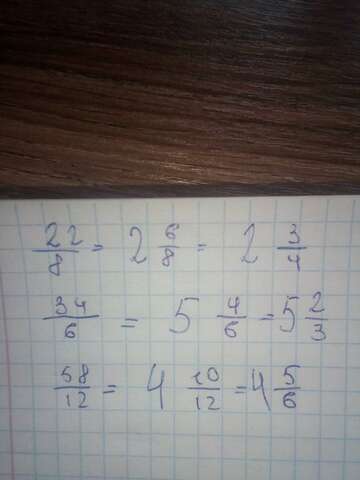 22/8 = 2 6/8 = 2 3/4
34/6 = 5 4/6 = 5 2/3
58/12 = 4 10/12 = 4 5/6